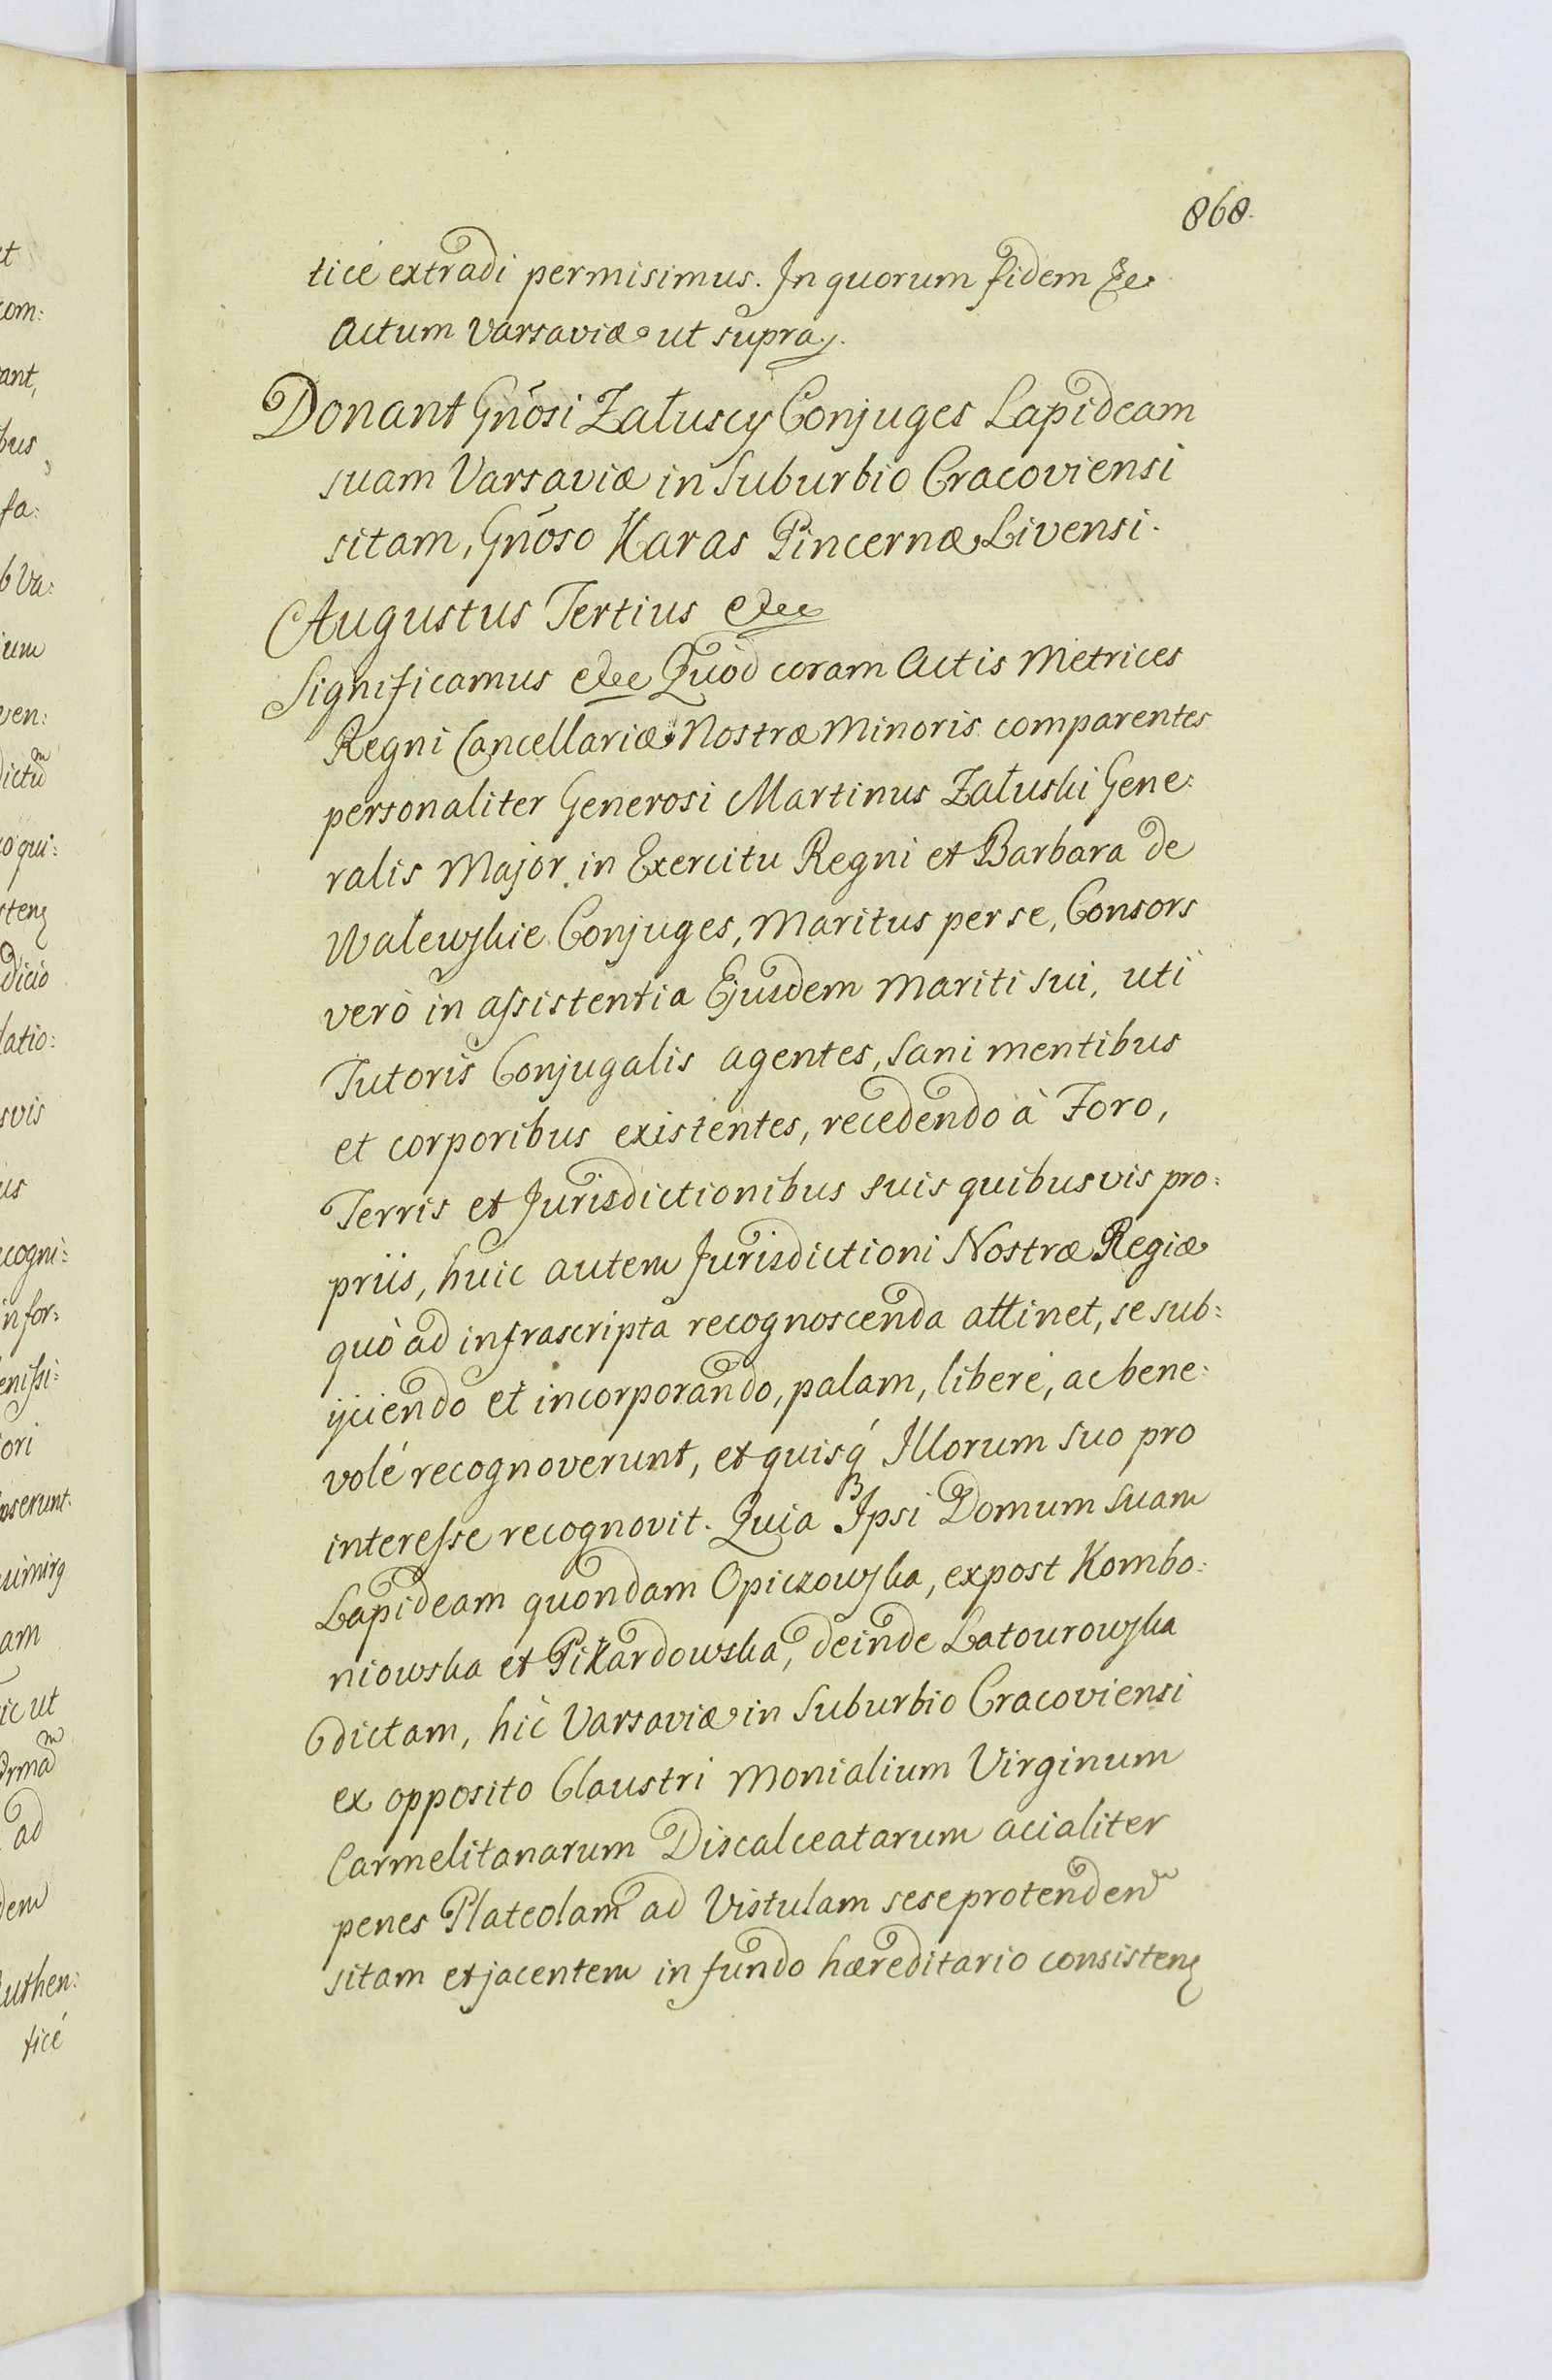 868.
ticé extradi permisimus. In quorum fidem &c
Actum Varsaviæ ut supra.
Donant Gnõsi Załuscy Conjuges Lapideam
suam Varsaviæ in Suburbio Cracoviensi
sitam, Gnõso Karas Pincernæ Livensi.
Augustus Tertius etcc
Significamus etcc Quod coram Actis Metrices
Regni Cancellariæ Nostræ Minoris comparentes
personaliter Generosi Martinus Załuski Gene:
ralis Major in Exercitu Regni et Barbara de
Walewskie Conjuges, Maritus per se, Consors
verò in assistentia Ejusdem Mariti sui, uti
Tutoris Conjugalis agentes, sani mentibus
et corporibus existentes, recedendo à Foro,
Terris et Jurisdictionibus suis quibusvis pro:
priis, huic autem Jurisdictioni Nostræ Regiæ
quò ad infrascripta recognoscenda attinet, se sub:
ijciendo et incorporando, palam, liberé, ac bene:
volé recognoverunt, et quisq́ Illorum suo pro
interesse recognovit. Quia Ipsi Domum suam
Lapideam quondam Opiczowska, expost Kombo:
niowska et Pikardowska, deinde Latourowska
dictam, hic Varsaviæ in Suburbio Cracoviensi
ex opposito Claustri Monialium Virginum
Carmelitanarum Discalceatarum acialiter
penes Plateolam ad Vistulam sese protenden
sitam et jacentem in fundo hæreditario consisten
ct
com:
ant,
bus
fa:
b Va:
ium
ven:
dictum
o qui:
dicio
latio:
svis
us
ecogni:
in for:
enissi:
ori
oserunt.
am
ic ut
ad
dem
Authen:
ticé